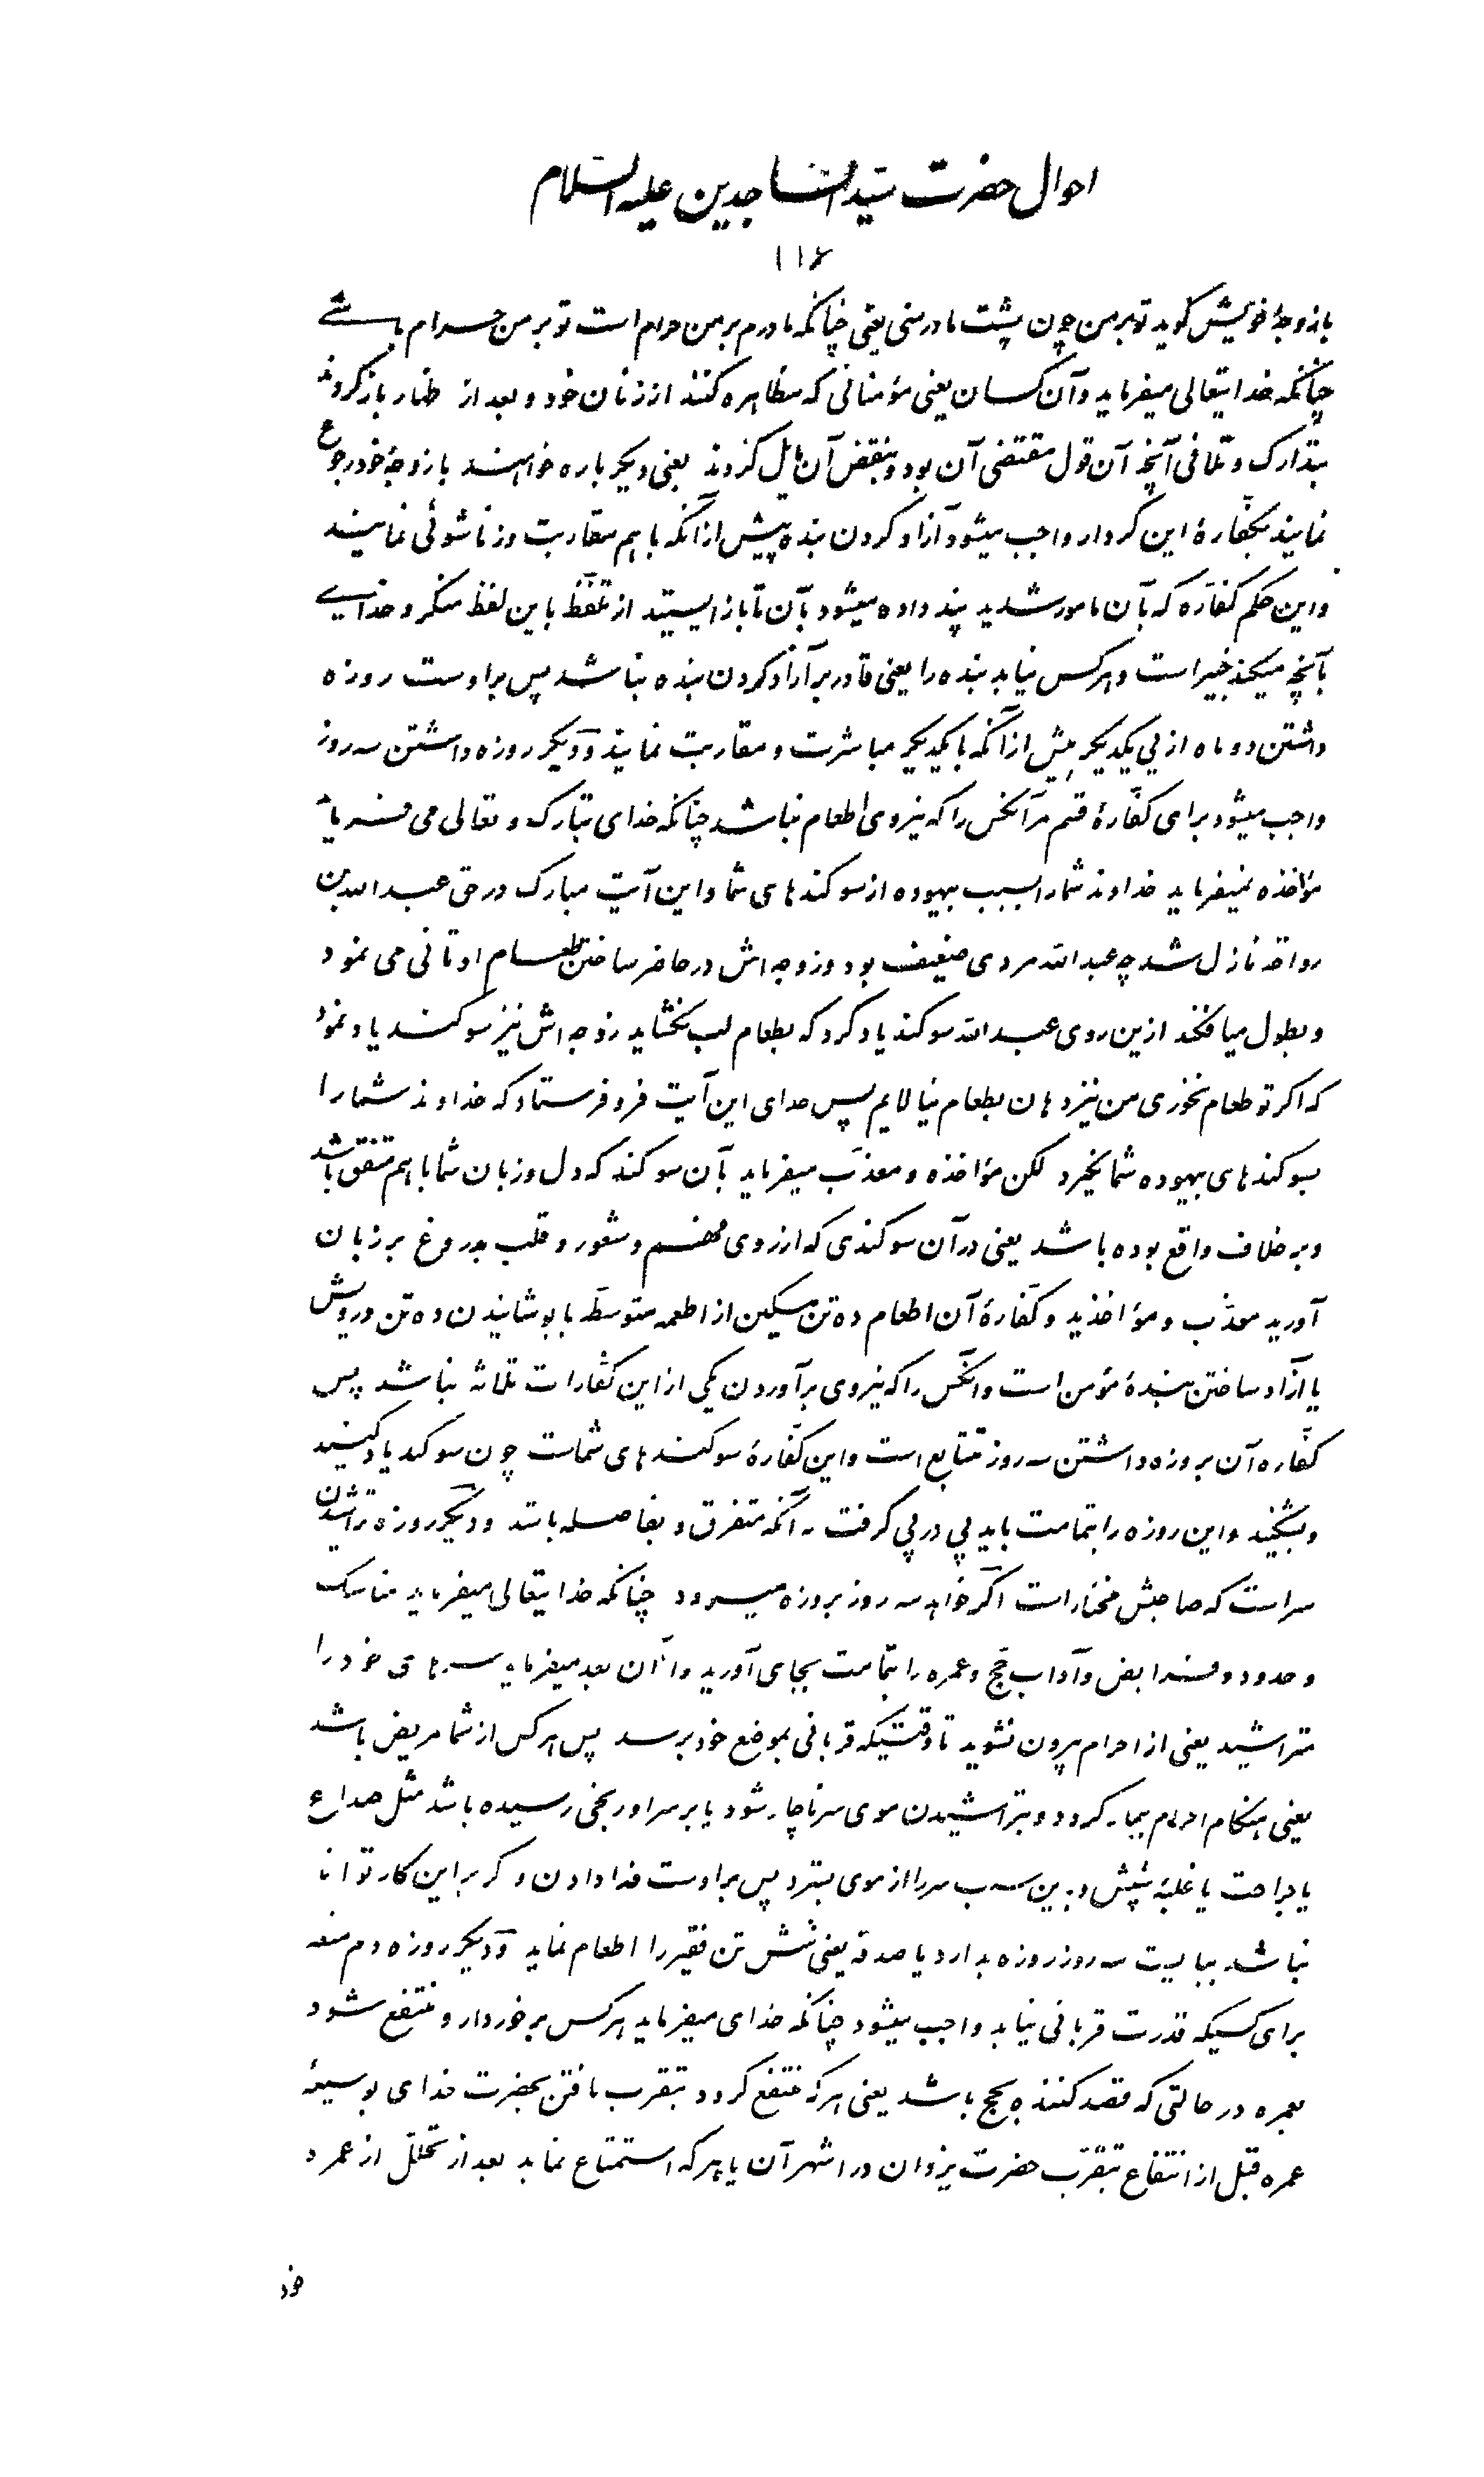 احوال حضرت سیّد السّاجدین علیه السّلام
۱۱۶
با زوجۀ خویش گوید تو بر من چون پشت مادر منی یعنی چنانکه مادرم بر من حرام است تو بر من حرام باشی
چنانکه خدایتعالی میفرماید و آن کسان یعنی مؤمنانی که مظاهره کنند از زنان خود و بعد از ظهار باز گردند
بتدارک و تلافی آنچه آن قول مقتضی آن بود و بنقض آن مایل گردند یعنی دیگر باره خواهند با زوجۀ خود رجوع
نمایند بکفّارۀ این کردار واجب میشود آزاد کردن بنده پیش از آنکه با هم مقاربت و زناشوئی نمایند
و این حکم کفّاره که بآن مامور شدید پند داده میشود بآن تا باز ایستید از تلفّظ باین لفظ منکر و خدای
بآنچه میکنید خبیر است و هر کس نیابد بنده را یعنی قادر بر آزاد کردن بنده نباشد پس بر اوست روزه
داشتن دو ماه از پی یکدیگر پیش از آنکه با یکدیگر مباشرت و مقاربت نمایند و دیگر روزه داشتن سه روز
واجب میشود برای کفّارۀ قسم مر آنکس را که نیروی اطعام نباشد چنانکه خدای تبارک و تعالی می فرماید
مؤاخذه نمیفرماید خداوند شما را بسبب بیهوده از سوگندهای شما و این آیت مبارک در حق عبدالله بن
رواحه نازل شد چه عبدالله مردی ضعیف بود و زوجه اش در حاضر ساختن طعام او تانی می نمود
و بطول میافکند ازین روی عبدالله سوگند یاد کرد که بطعام لب نگشاید زوجه اش نیز سوگند یاد نمود
که اگر تو طعام نخوری من نیز دهان بطعام نیالایم پس خدای این آیت فرو فرستاد که خداوند شما را
بسوگندهای بیهوده شما نگیرد لکن مؤاخذه و معذّب میفرماید بآن سوگند که دل و زبان شما با هم متفق باشد
و بر خلاف واقع بوده باشد یعنی در آن سوگندی که از روی فهم و شعور و قلب بدروغ بر زبان
آورید معذّب و مؤاخذید و کفّارۀ آن اطعام ده تن مسکین از اطعمه متوسّط یا پوشانیدن ده تن درویش
یا آزاد ساختن بندۀ مؤمن است و آنکس را که نیروی بر آوردن یکی از این کفّارات ثلاثه نباشد پس
کفّاره آن بروزه داشتن سه روز متتابع است و این کفّارۀ سوگندهای شماست چون سوگند یاد کنید
و بشکنید و این روزه را بتمامت باید پی در پی گرفت نه آنکه متفرق و بفاصله باشد و دیگر روزه تراشیدن
سر است که صاحبش مختار است اگر خواهد سه روز بروزه میرود چنانکه خدایتعالی میفرماید مناسک
و حدود و فرایض و آداب حج و عمره را بتمامت بجای آورید و از آن بعد میفرماید سرهای خود را
متراشید یعنی از احرام بیرون نشوید تا وقتیکه قربانی بموضع خود برسد پس هر کس از شما مریض باشد
یعنی هنگام احرام بیمار گردد و بتراشیدن موی سر ناچار شود یا بر سر او رنجی رسیده باشد مثل صداع
یا جراحت یا غلبۀ شپش و بدین سبب سر را از موی بسترد پس بر اوست فدا دادن و گر بر این کار توانا
نباشد ببایست سه روز روزه بدارد یا صدقه یعنی شش تن فقیر را اطعام نماید و دیگر روزه دم متعه
برای کسیکه قدرت قربانی نیابد واجب میشود چنانکه خدای میفرماید هر کس برخوردار و منتفع شود
بعمره در حالتی که قصد کننده بحج باشد یعنی هر که منتفع گردد بتقرب یافتن بحضرت خدای بوسیله
عمره قبل از انتفاع بتقرّب حضرت یزدان در اشهر آن یا هر که استمتاع نماید بعد از تحلّل از عمره
خود